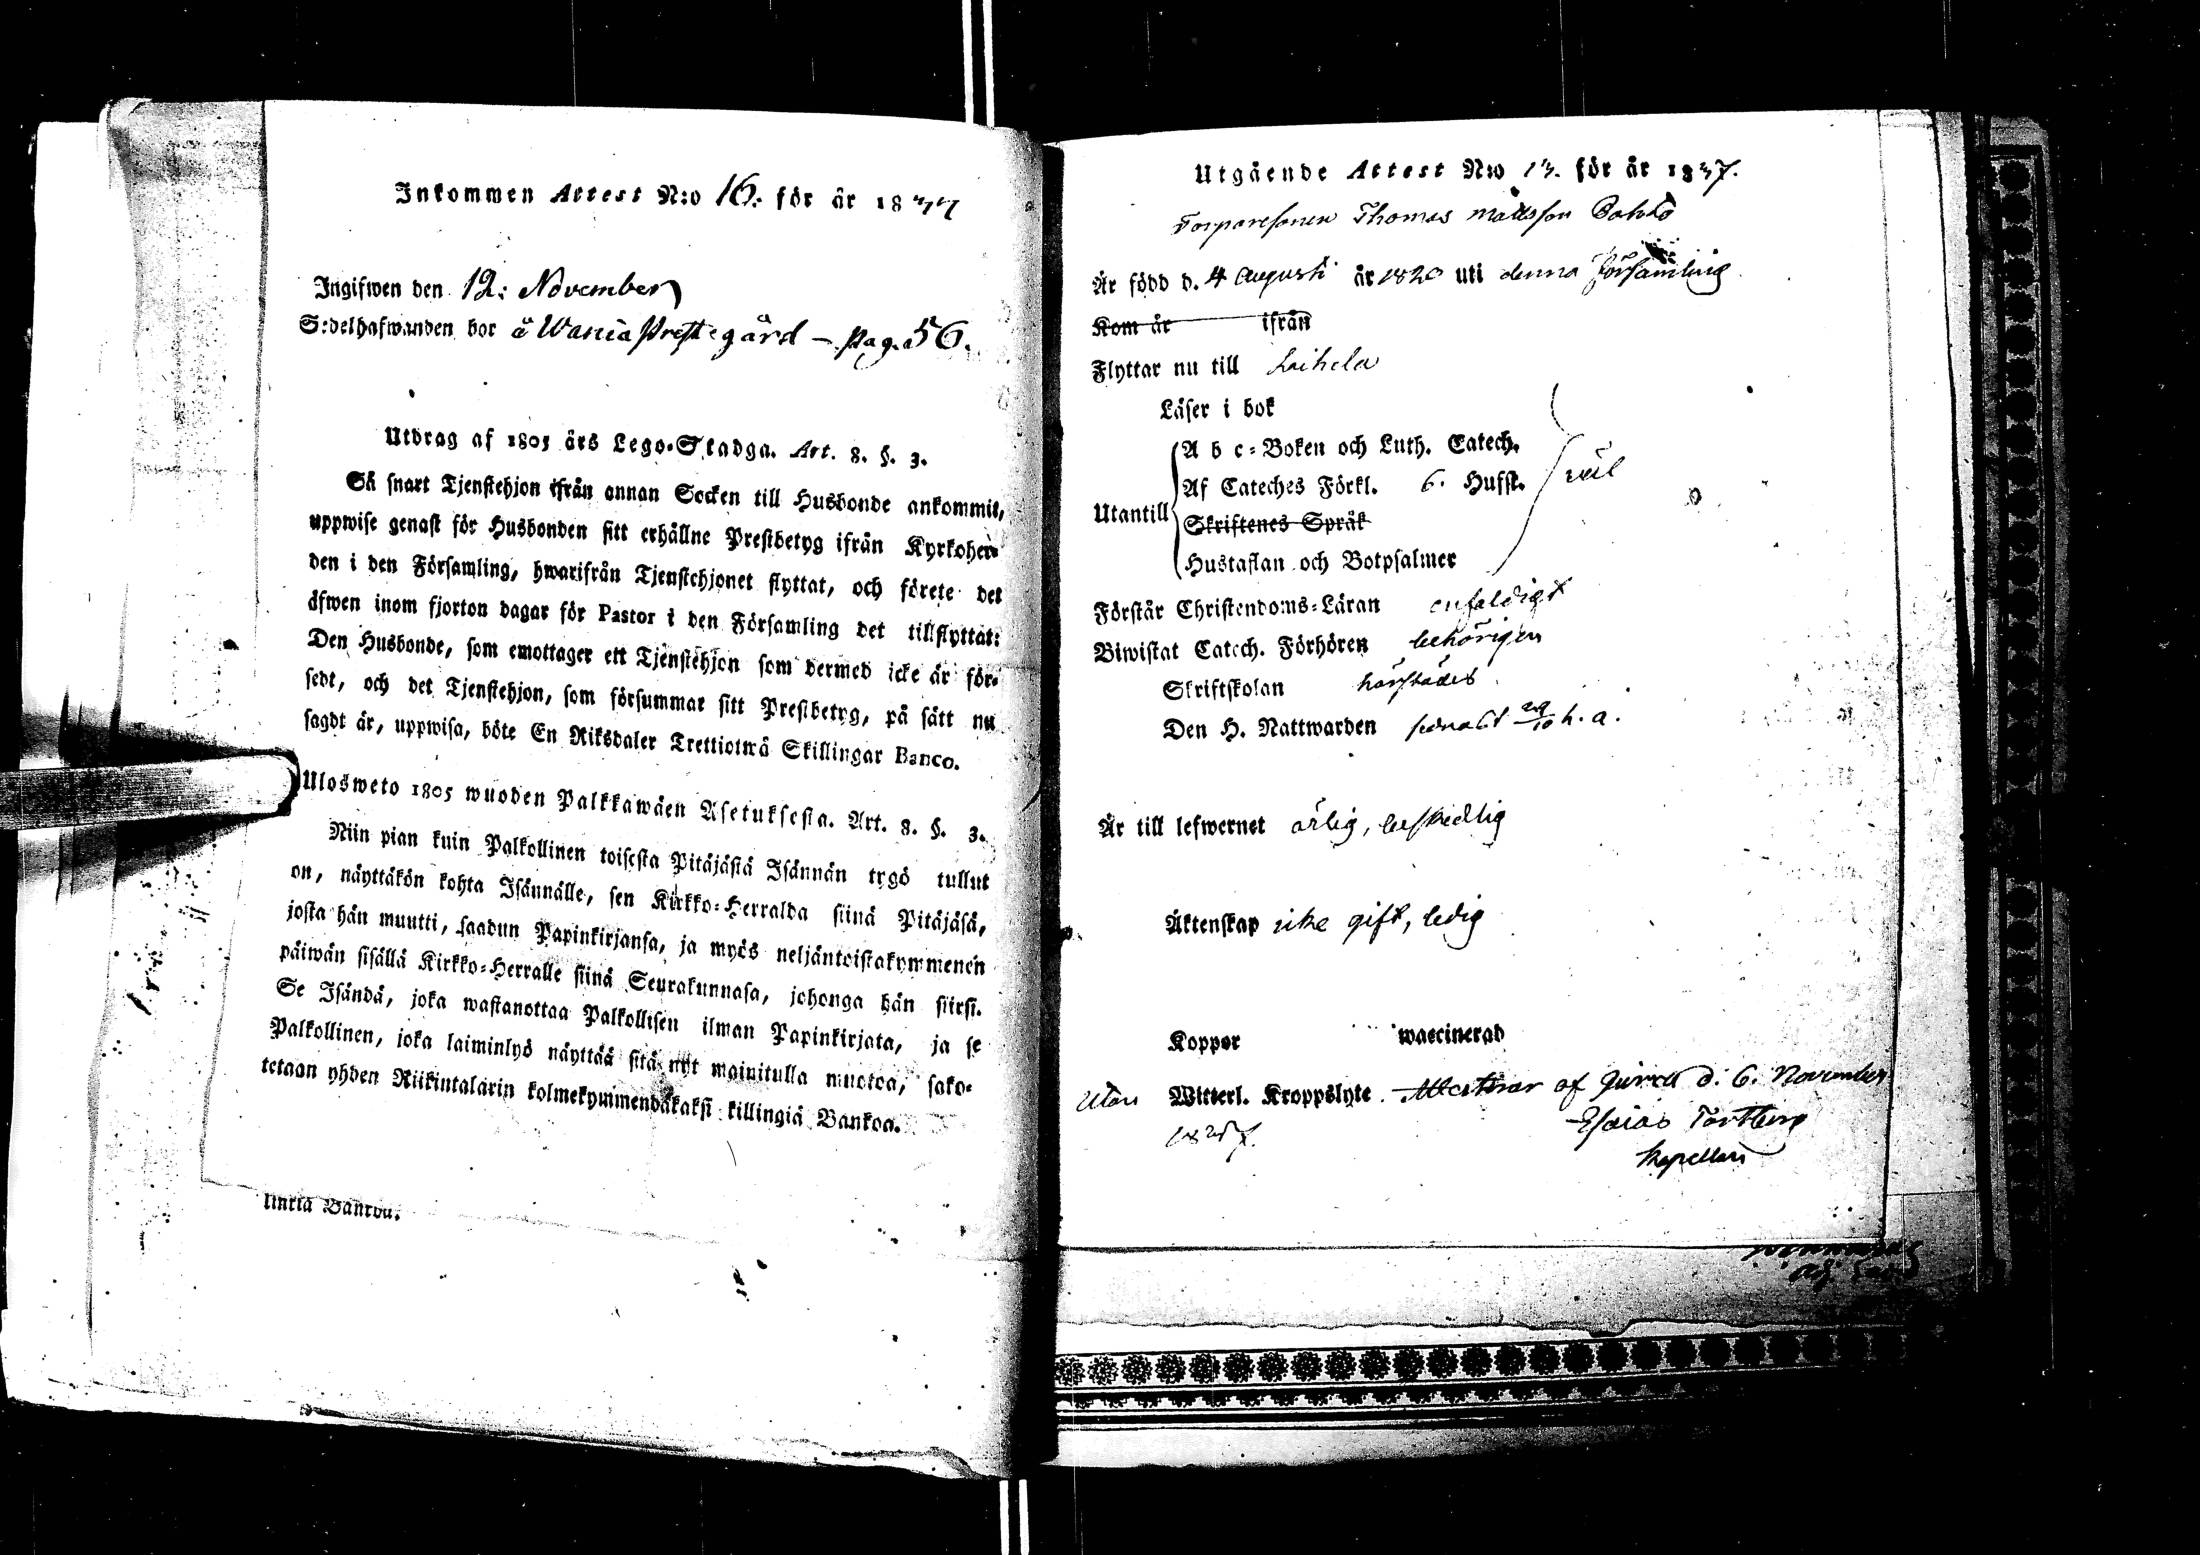 Inkommen Attest N:o 16. för år 1837
Ingifwen den 12: November
S:delhafwanden bor å Wania Prestegård – pag. 56.
Utdrag af 1805 års Lego-Stadga. Art. 8. §. 3.
Så snart Tjenstehjon ifrån annan Socken till Husbonde ankommit,
uppwise genast för Husbonden sitt erhållne Prestbetyg ifrån Kyrkoher-
den i den Församling, hwarifrån Tjenstehjonet flyttat, och förete det
äfwen inom fjorton dagar för Pastor i den Församling det tillflyttat:
Den Husbonde, som emottager ett Tjenstehjon som dermed icke är för-
sedt, och det Tjenstehjon, som försummar sitt Prestbetyg, på sätt nu
sagdt är, uppwisa, böte En Riksdaler Trettiotwå Skillingar Banco.
Ulosweto 1805 wuoden Palkkawäen Asetuksesta. Art. 8. §. 3.
Niin pian kuin Palkollinen toisesta Pitäjästä Isännän tygö tullut
on, näyttäkön kohta Isännälle, sen Kirkko-Herralda siinä Pitäjäsä,
josta hän muutti, saadun Papinkirjansa, ja myös neljäntoistakymmenen
päiwän sisällä Kirkko-Herralle siinä Seurakunnasa, johonga hän siirsi.
Se Isändä, joka wastanottaa Palkollisen ilman Papinkirjata, ja se
Palkollinen, joka laiminlyö näyttää sitä nyt mainitulla muotoa, sako-
tetaan yhden Riikintalarin kolmekymmendäkaksi killingiä Bankoa.
Utgående Attest N:o 13. för år 1837.
Torparesonen Thomas Mattsson
Är född d. 4 Augusti år 1820 uti denna Församling
Kom år ifrån
Flyttar nu till Laihela
Läser i bok
A b c-Boken och Luth. Catech.
Af Cateches Förkl. 6. Hufst. väl
Utantill
Skriftenes Språk
Hustaflan och Botpsalmer
Förstår Christendoms-Läran enfaldigt
Biwistat Catech. Förhören behörigen
Skriftskolan härstädes
Den H. Nattwarden senast 29/10 h. a.
Är till lefwernet ärlig, beskedlig
Äktenskap icke gift, ledig
Koppor waccinerad
utan Witterl. Kroppslyte. Attesterar af d. 6. November
Esaias
Kapellan